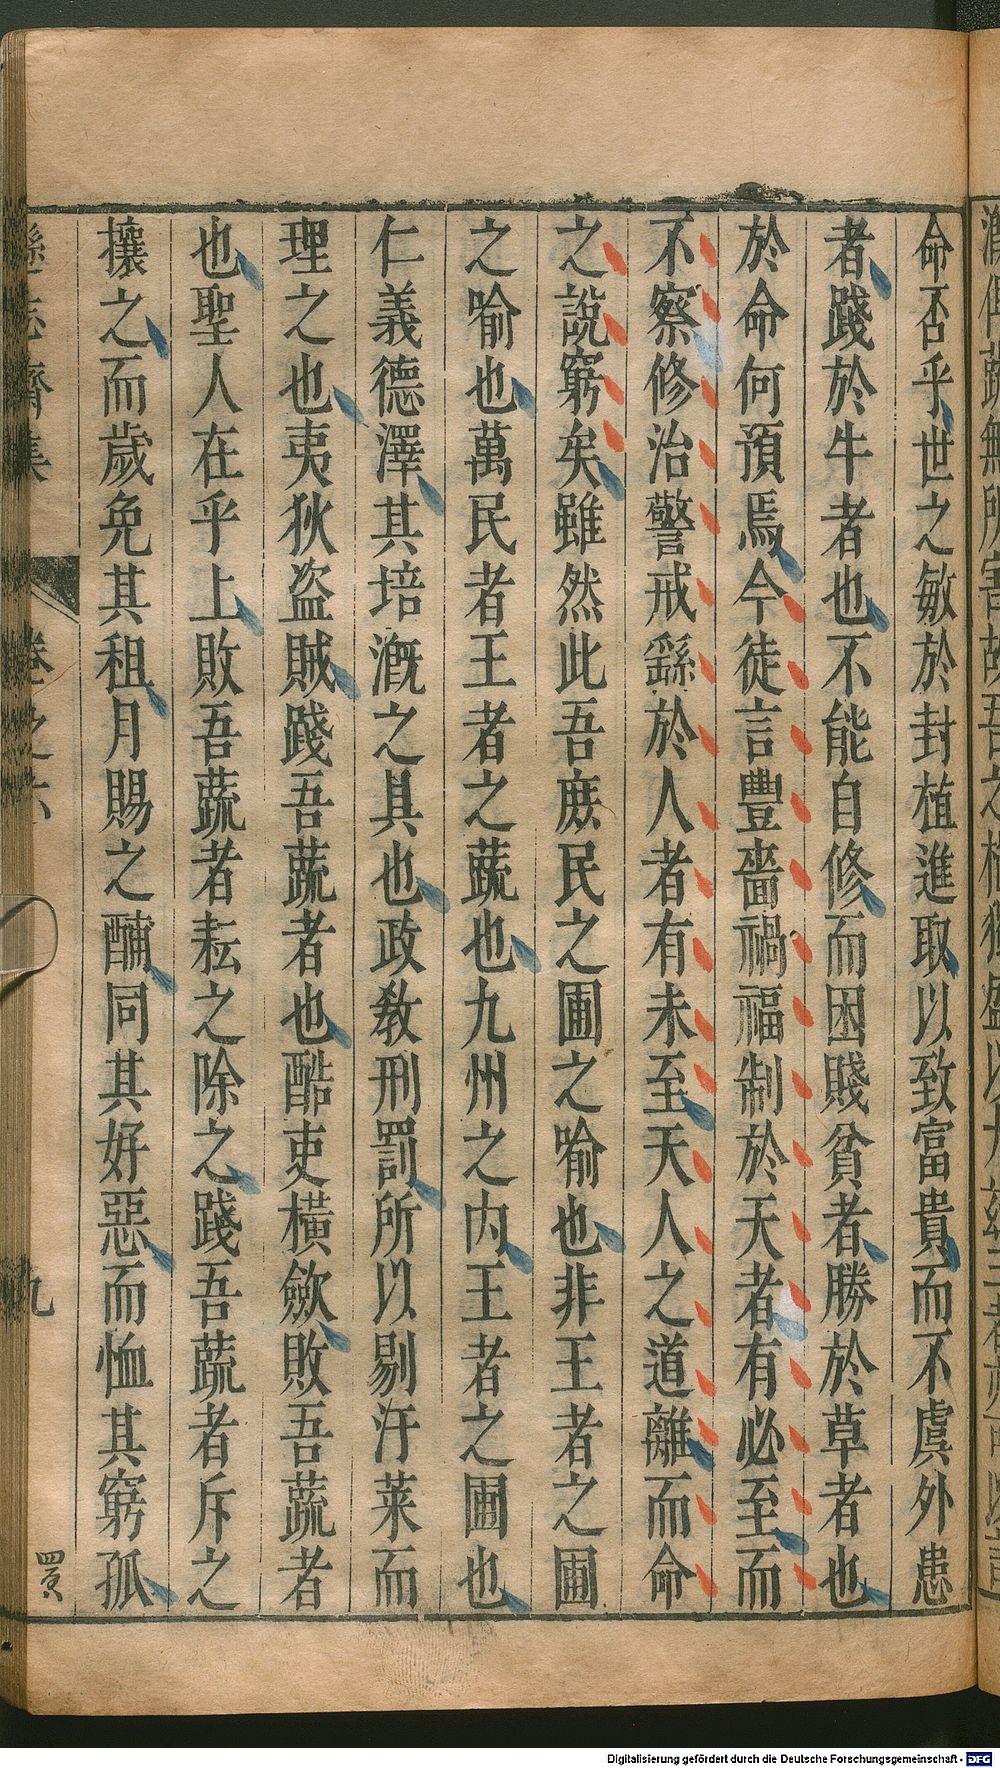 命否乎世之敏於封植進取以致富貴而不虞外患
者踐於牛者也不能自修而困賤貧者勝於草者也
於命何預焉今徒言豐嗇禍福制於天者有必至而
不察修治警戒繇於人者有未至天人之道離而命
之說窮矣雖然此吾庶民之圃之喻也非王者之圃
之喻也萬民者王者之蔬也九州之内王者之圃也
仁義德澤其培溉之具也政教刑罰所以剔汙萊而
理之也夷狄盜賊踐吾蔬者也酷吏橫斂敗吾蔬者
也聖人在乎上敗吾蔬者耘之除之踐吾蔬者斥之
攘之而歲免其租月賜之酺同其好惡而恤其窮孤
遜志齋集 卷之六 九
Digitalisierung gefördert durch die Deutsche Forschungsgemeinschaft - DFG